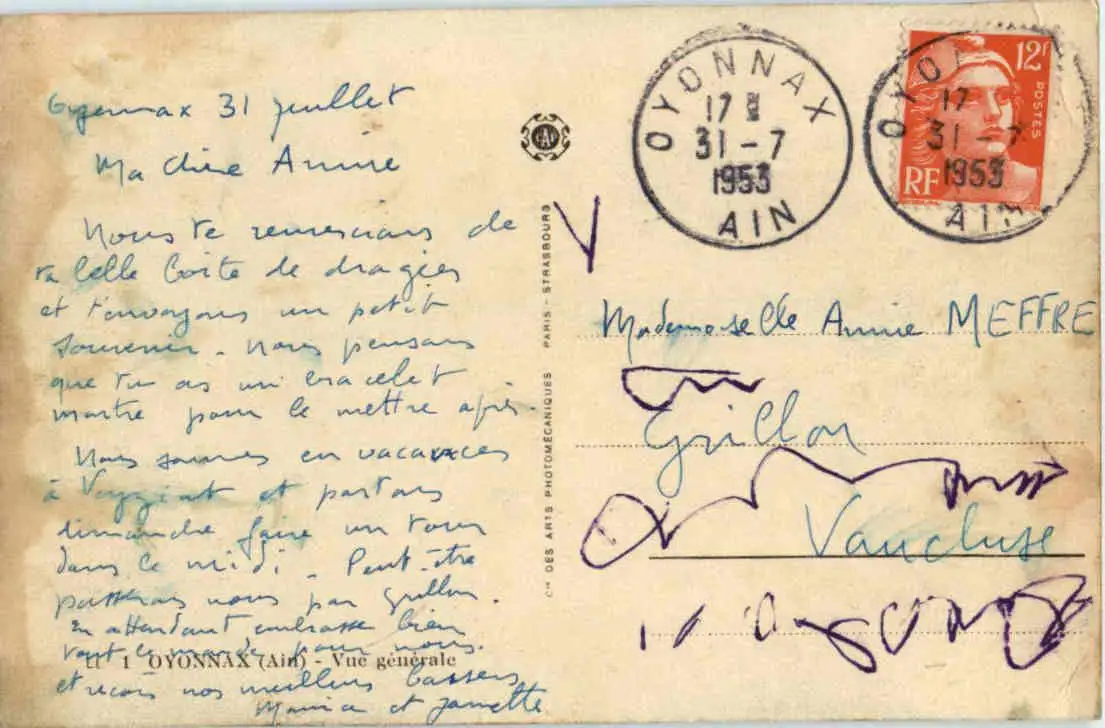 Oyonnax 31 juillet
Ma chère Annie
Nous te remercions de
ta belle boîte de dragées
et t'envoyons un petit
souvenir. Nous pensons
que tu as un bracelet
montre pour le mettre après.
Nous sommes en vacances
à Veyziat et partons
dimanche faire un tour
dans le midi. Peut-être
passerons nous par Grillon.
En attendant, embrasse bien
tout le monde pour nous.
et reçois nos meilleurs baisers
Maurice et Jannette
1 OYONNAX (Ain) - Vue générale
Cie DES ARTS PHOTOMÉCANIQUES PARIS - STRASBOURG
OYONNAX
17
31 - 7
1953
AIN
12F
POSTES
RF
OYO
17
31 - 7
1953
AIN
Mademoiselle Annie MEFFRE
Grillon
Vaucluse